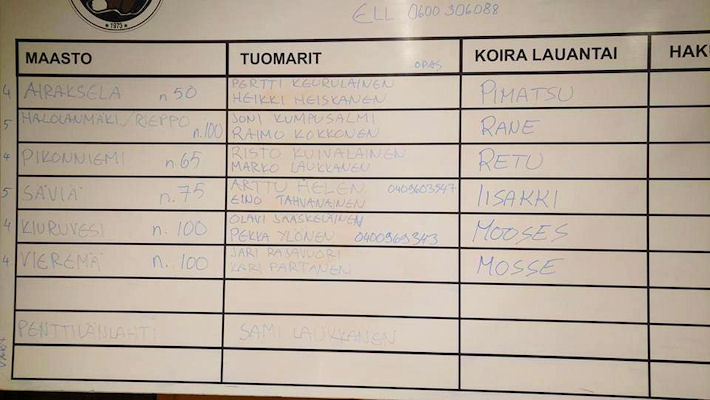 1973
ELL 0600 306088
MAASTO TUOMARIT OPAS KOIRA LAUANTAI
4 AIRAKSELA n 50 PERTTI KEURULAINEN PIMATSU
HEIKKI HEISKANEN
5 HALOLANMÄKI/RIEPPO n.100 JONI KUMPUSALMI RANE
RAIMO KOKKONEN
4 PIKONNIEMI n.65 RISTO KUIVALAINEN RETU
MARKO LAUKKANEN
5 SÄVIÄ n.75 ARTTU HELEN 0409603547 IISAKKI
EINO TAHVANAINEN
4 KIURUVESI n. 100 OLAVI SÄÄSKELÄINEN MOOSES
PEKKA YLÖNEN 0400969343
4 VIEREMÄ n. 100 JARI RASAVUORI MOSSE
KARI PARTANEN
PENTTILÄNLAHTI SAMI LAUKKANEN